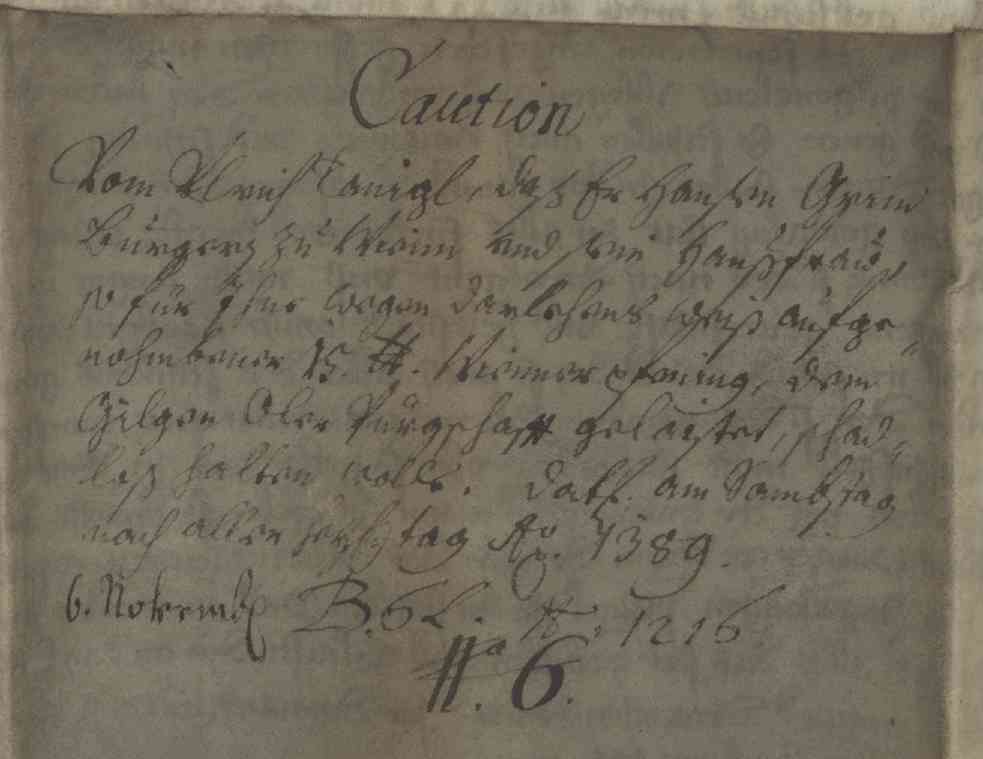 Caution
Vom Ulrich Tanigl, daß Er Hansen Grein
Burgers zu Wienn und sein Haußfraw,
so für Ihne wegen darlehens weiß aufge„
nohmbener 15. ₰. Wienner pfening, dem
Gilgen Oler Purgschafft gelaistet, schad„
loß halten wolle. Datt. am Sambstag
nach aller heyligtag Ao. 1389.
6. Novemb. B. 6 L. N. 1216
No. 6.